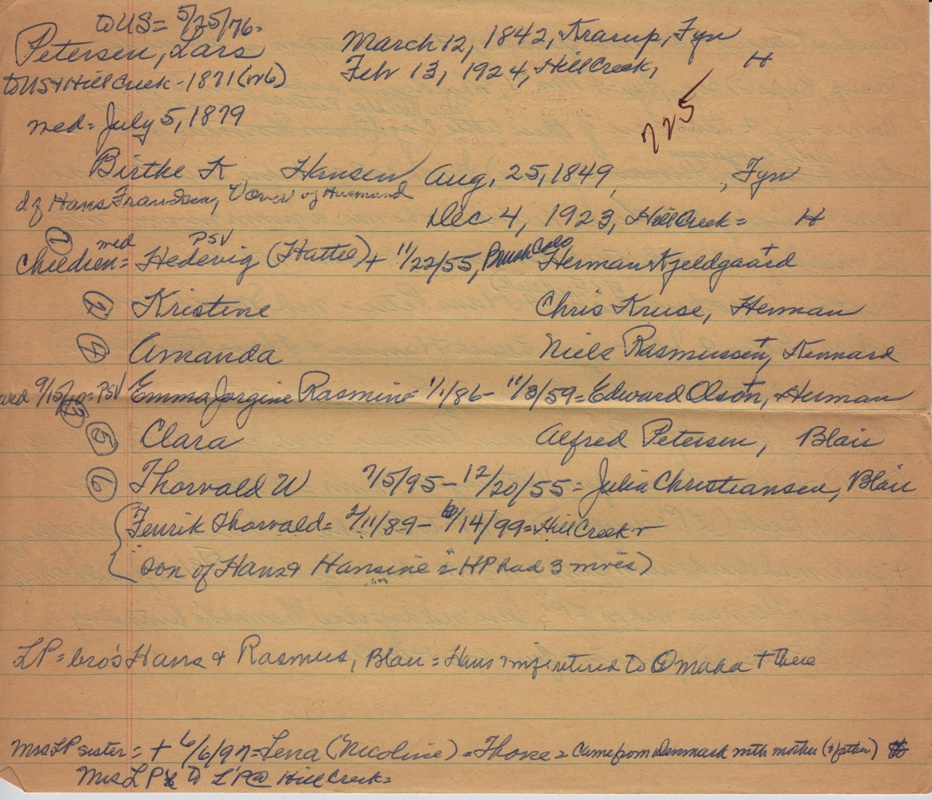 to US = 5/25/76 =
Petersen, Lars March 12, 1842, Krarup, Fyn
to US + Hill Creek - 1871 (ors) Feb 13, 1924, Hill Creek, H
med = July 5, 1879
725
Birthe K Hansen Aug. 25, 1849, , Fyn
d of Hans Frandsen, of Husmand
Dec 4, 1923, Hill Creek = H
① med PSV
Children = Hedevig (Hattie) + 11/22/55, Brush Colo Herman Kjeldgaard
② Kristine Chris Kruse, Herman
④ Amanda Niels Rasmussen +, Kennard
med 9/15/10 = PSV Emma Jorgine Rasmine = 1/1/86 - 11/3/59 = Edward Olson +, Herman
③
⑤ Clara Alfred Petersen, Blair
⑥ Thorvald W 7/5/95 - 12/20/55 = Julia Christiansen, Blair
Henrik Thorvald = 2/11/89 - 6/14/99 = Hill Creek
son of Hans & Hansine = HP had 3 )
LP = bro's Hans & Rasmus, Blair = Hans retired to Omaha + there
Mrs LP sister = + 6/6/97 = Lena (Nicoline) = Thone = Came from Denmark with mother
Mrs LP & to LP @ Hill Creek =